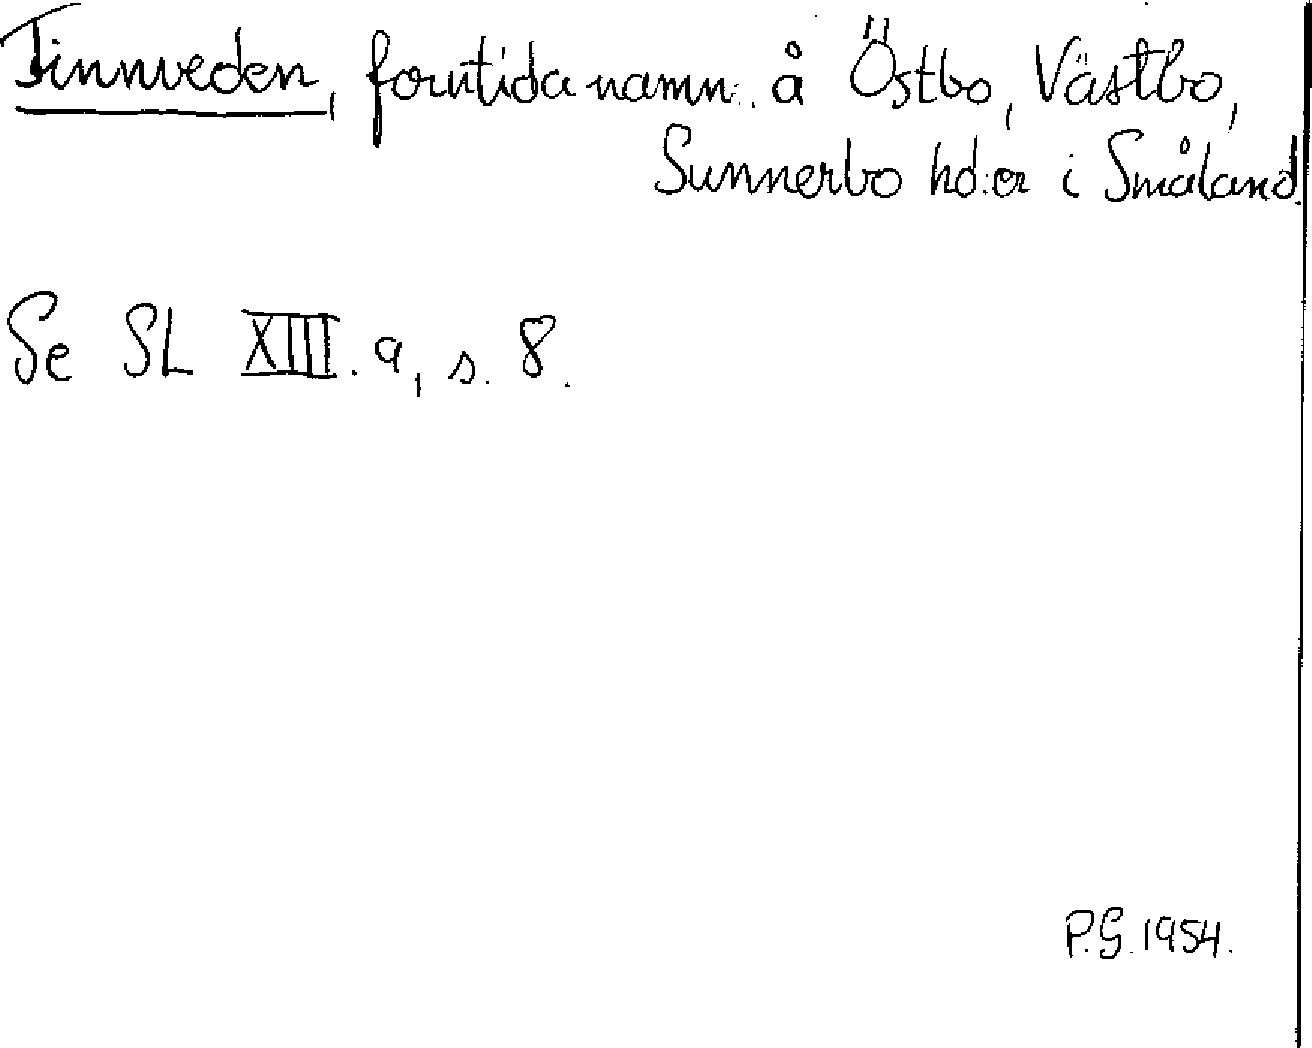 Finnveden, forntida namn å Östbo, Västbo,
Sunnerbo hd:er i Småland.
Se SL XIII. a, s. 8.
P.G. 1954.